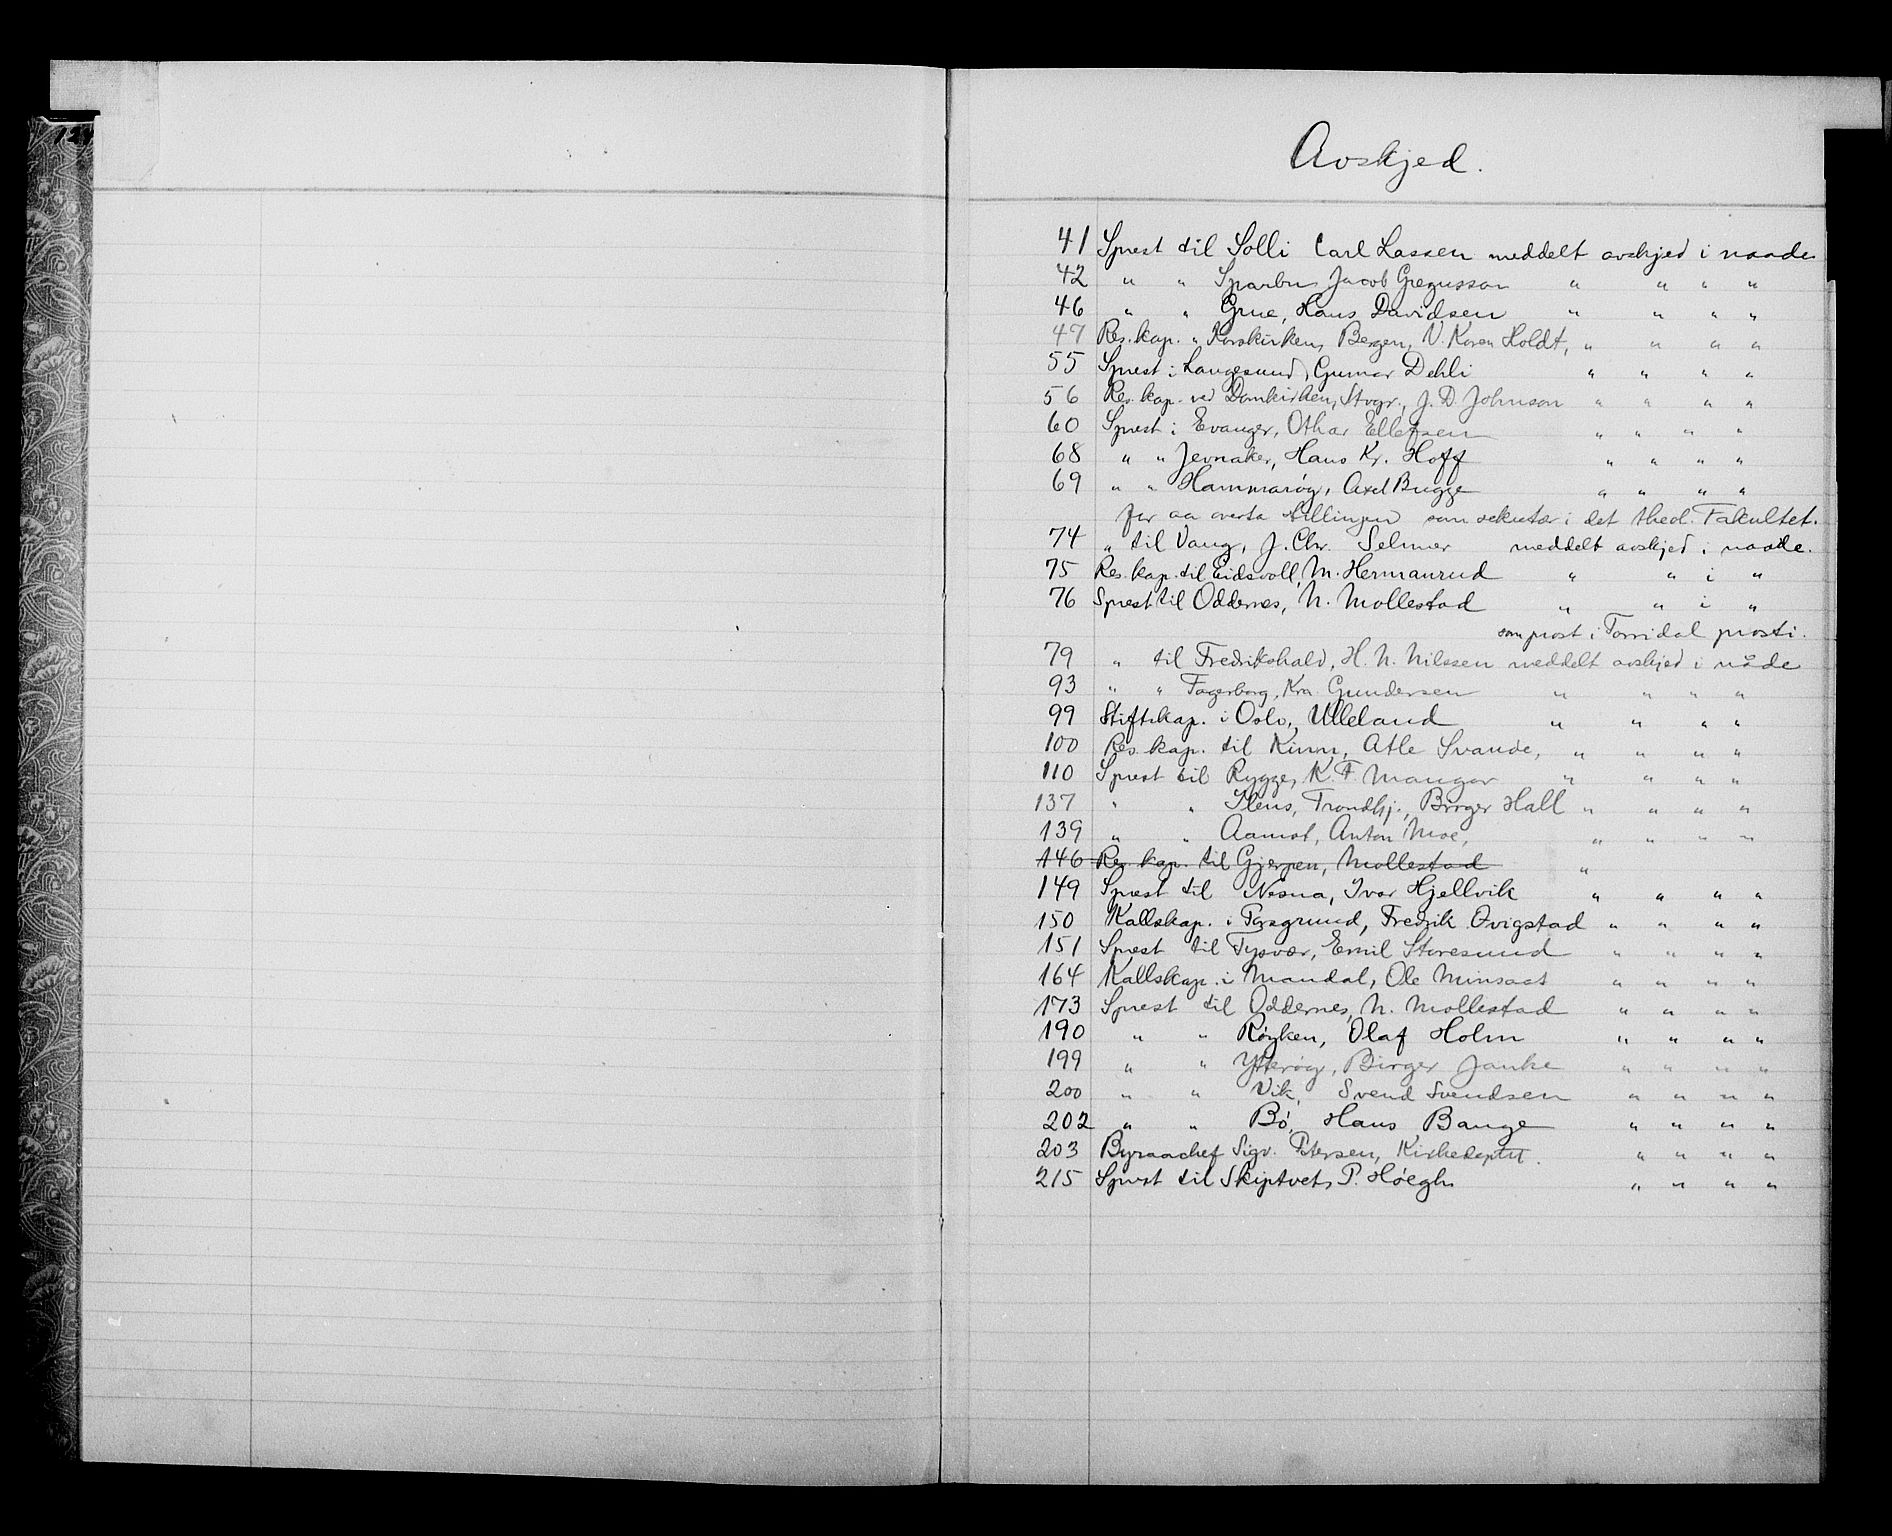 Avskjed.
41 Sprest til Solli Carl Lassen meddelt avskjed i naade
42 " " Sparbu, Jacob Gregusson " " " "
46 " " Grue, Hans Davidsen " " " "
47 Res. kap. " Korskirken, Bergen, V. Koren Holdt, " " " "
55 Sprest i Langesund, Gunnar Dehli " " " "
56 Res. kap. ved Domkirken, Stvgr., J. D. Johnson " " " "
60 Sprest i Evanger, Othar Ellefsen " " " "
68 " " Jevnaker, Hans Kr. Hoff " " " "
69 " " Hammarøy, Axel Bugge " " " "
for aa overta stillingen som sekretær i det theol. Fakultet.
74 " til Vang, J. Chr. Selmer meddelt avskjed i naade.
75 Res. kap. til Eidsvoll, M. Hermanrud " " i "
76 Sprest til Oddernes, N. Mollestad " " i "
som prost i Torridal prosti.
79 " til Fredrikshald, H. N. Nilssen meddelt avskjed i nåde
93 " " Fagerborg, Kra. Gundersen " " " "
99 Stiftskap. i Oslo, Ulleland " " " "
100 Res. kap. til Kinn, Atle Svande, " " " "
110 Sprest til Rygge, K. F. Mangor " " " "
137 " " Ilens, Trondhj., Birger Hall " " " "
139 " " Aamot, Anton Moe, " " " "
146 Res. kap. til Gjerpen, Mollestad "
149 Sprest til Nesna, Ivar Hjellvik " " " "
150 Kallskap. i Porsgrund, Fredrik Qvigstad " " " "
151 Sprest til Tysvær, Emil Storesund " " " "
164 Kallskap. i Mandal, Ole Minsaas " " " "
173 Sprest til Oddernes, N. Mollestad " " " "
190 " " Røyken, Olaf Holm " " " "
199 " " Ytterøy, Birger Janke " " " "
200 " " Vik, Svend Svendsen " " " "
202 " " Bø, Hans Bauge " " " "
203 Byraachef Sigv. Petersen, Kirkedeptet. " " " "
215 Sprest til Skiptvet, P. Høegh " " " "